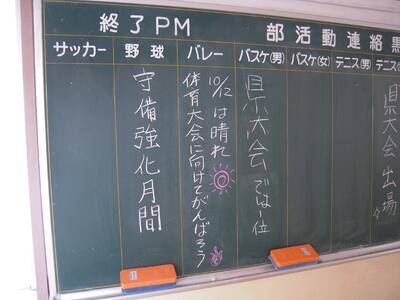 終 3 PM
部活動連絡黒
サッカー
野球
守備強化月間
バレー
10/12は晴れ
体育大会に向けてがんばろう
バスケ(男)
県大会では1位
バスケ(女)
テニス(男)
テニス
県大会出場